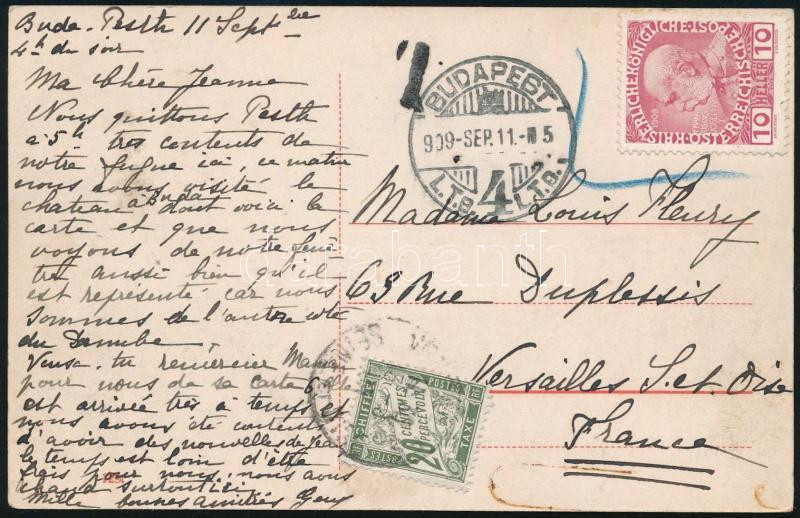 Buda-Pesth 11 Septbre
4h du soir
Ma Chère Jeanne
Nous quittons Pesth
à 5h très contents de
notre fugue ici, ce matin
nous avons visité le
chateau à Buda dont voici la
carte et que nous
voyons de notre fenê
tre aussi bien qu'il
est représenté car nous
sommes de l'autre côté
du Danube
Veux-tu remercier Maman
pour nous de sa carte elle
est arrivée très à temps et
nous avons été contents
d'avoir des nouvelles de
le temps est loin d'être
frais pour nous, nous avons
chaud surtout ici
Mille bonnes amitiés
T.
BUDAPEST.
909-SEP.11.-N5
4
L.T.a. L.T.a.
KAISERLICHEKÖNIGLICHE ÖSTERREICHISCHE POST
10 HELLER 10
Madame Louis Fleury
63 Rue Duplessis
Versailles S. et Oise
France
CHIFFRE TAXE
POSTES RF
20 CENTIMES À PERCEVOIR
darabanth